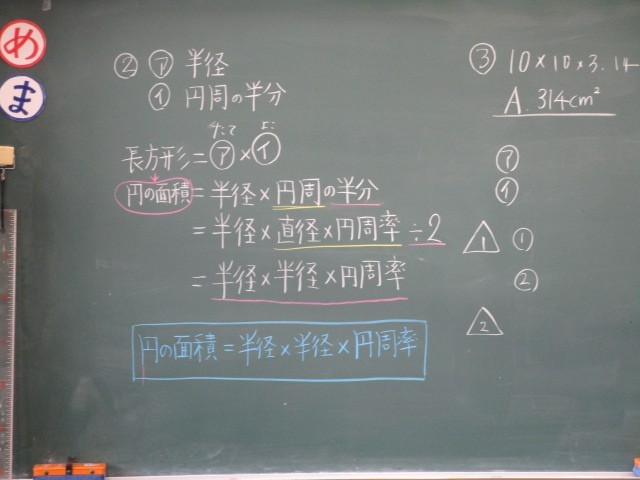 め
ま
② ㋐ 半径
㋑ 円周の半分
たて よこ
長方形=㋐×㋑
円の面積=半径×円周の半分
=半径×直径×円周率÷2
=半径×半径×円周率
円の面積=半径×半径×円周率
③ 10×10×3.14
A. 314cm²
㋐
㋑
1 ①
②
2